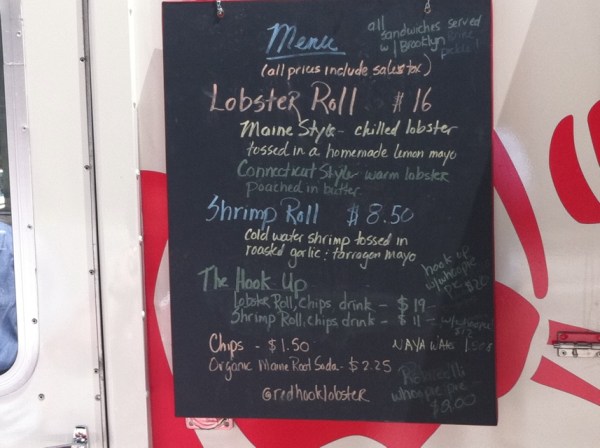 Menu
all
sandwiches served
w/ Brooklyn Brine
pickle!
(all prices include sales tax)
Lobster Roll $16
Maine Style - chilled lobster
tossed in a homemade lemon mayo
Connecticut Style - warm lobster
poached in butter
Shrimp Roll $8.50
Cold water shrimp tossed in
roasted garlic & tarragon mayo
hook up
w/ whoopie
pie $20
The Hook Up
Lobster Roll, chips drink - $19
Shrimp Roll, chips drink - $11
Chips - $1.50
Organic Maine Root Soda - $2.25
whoopie pie
$3.00
@redhooklobster